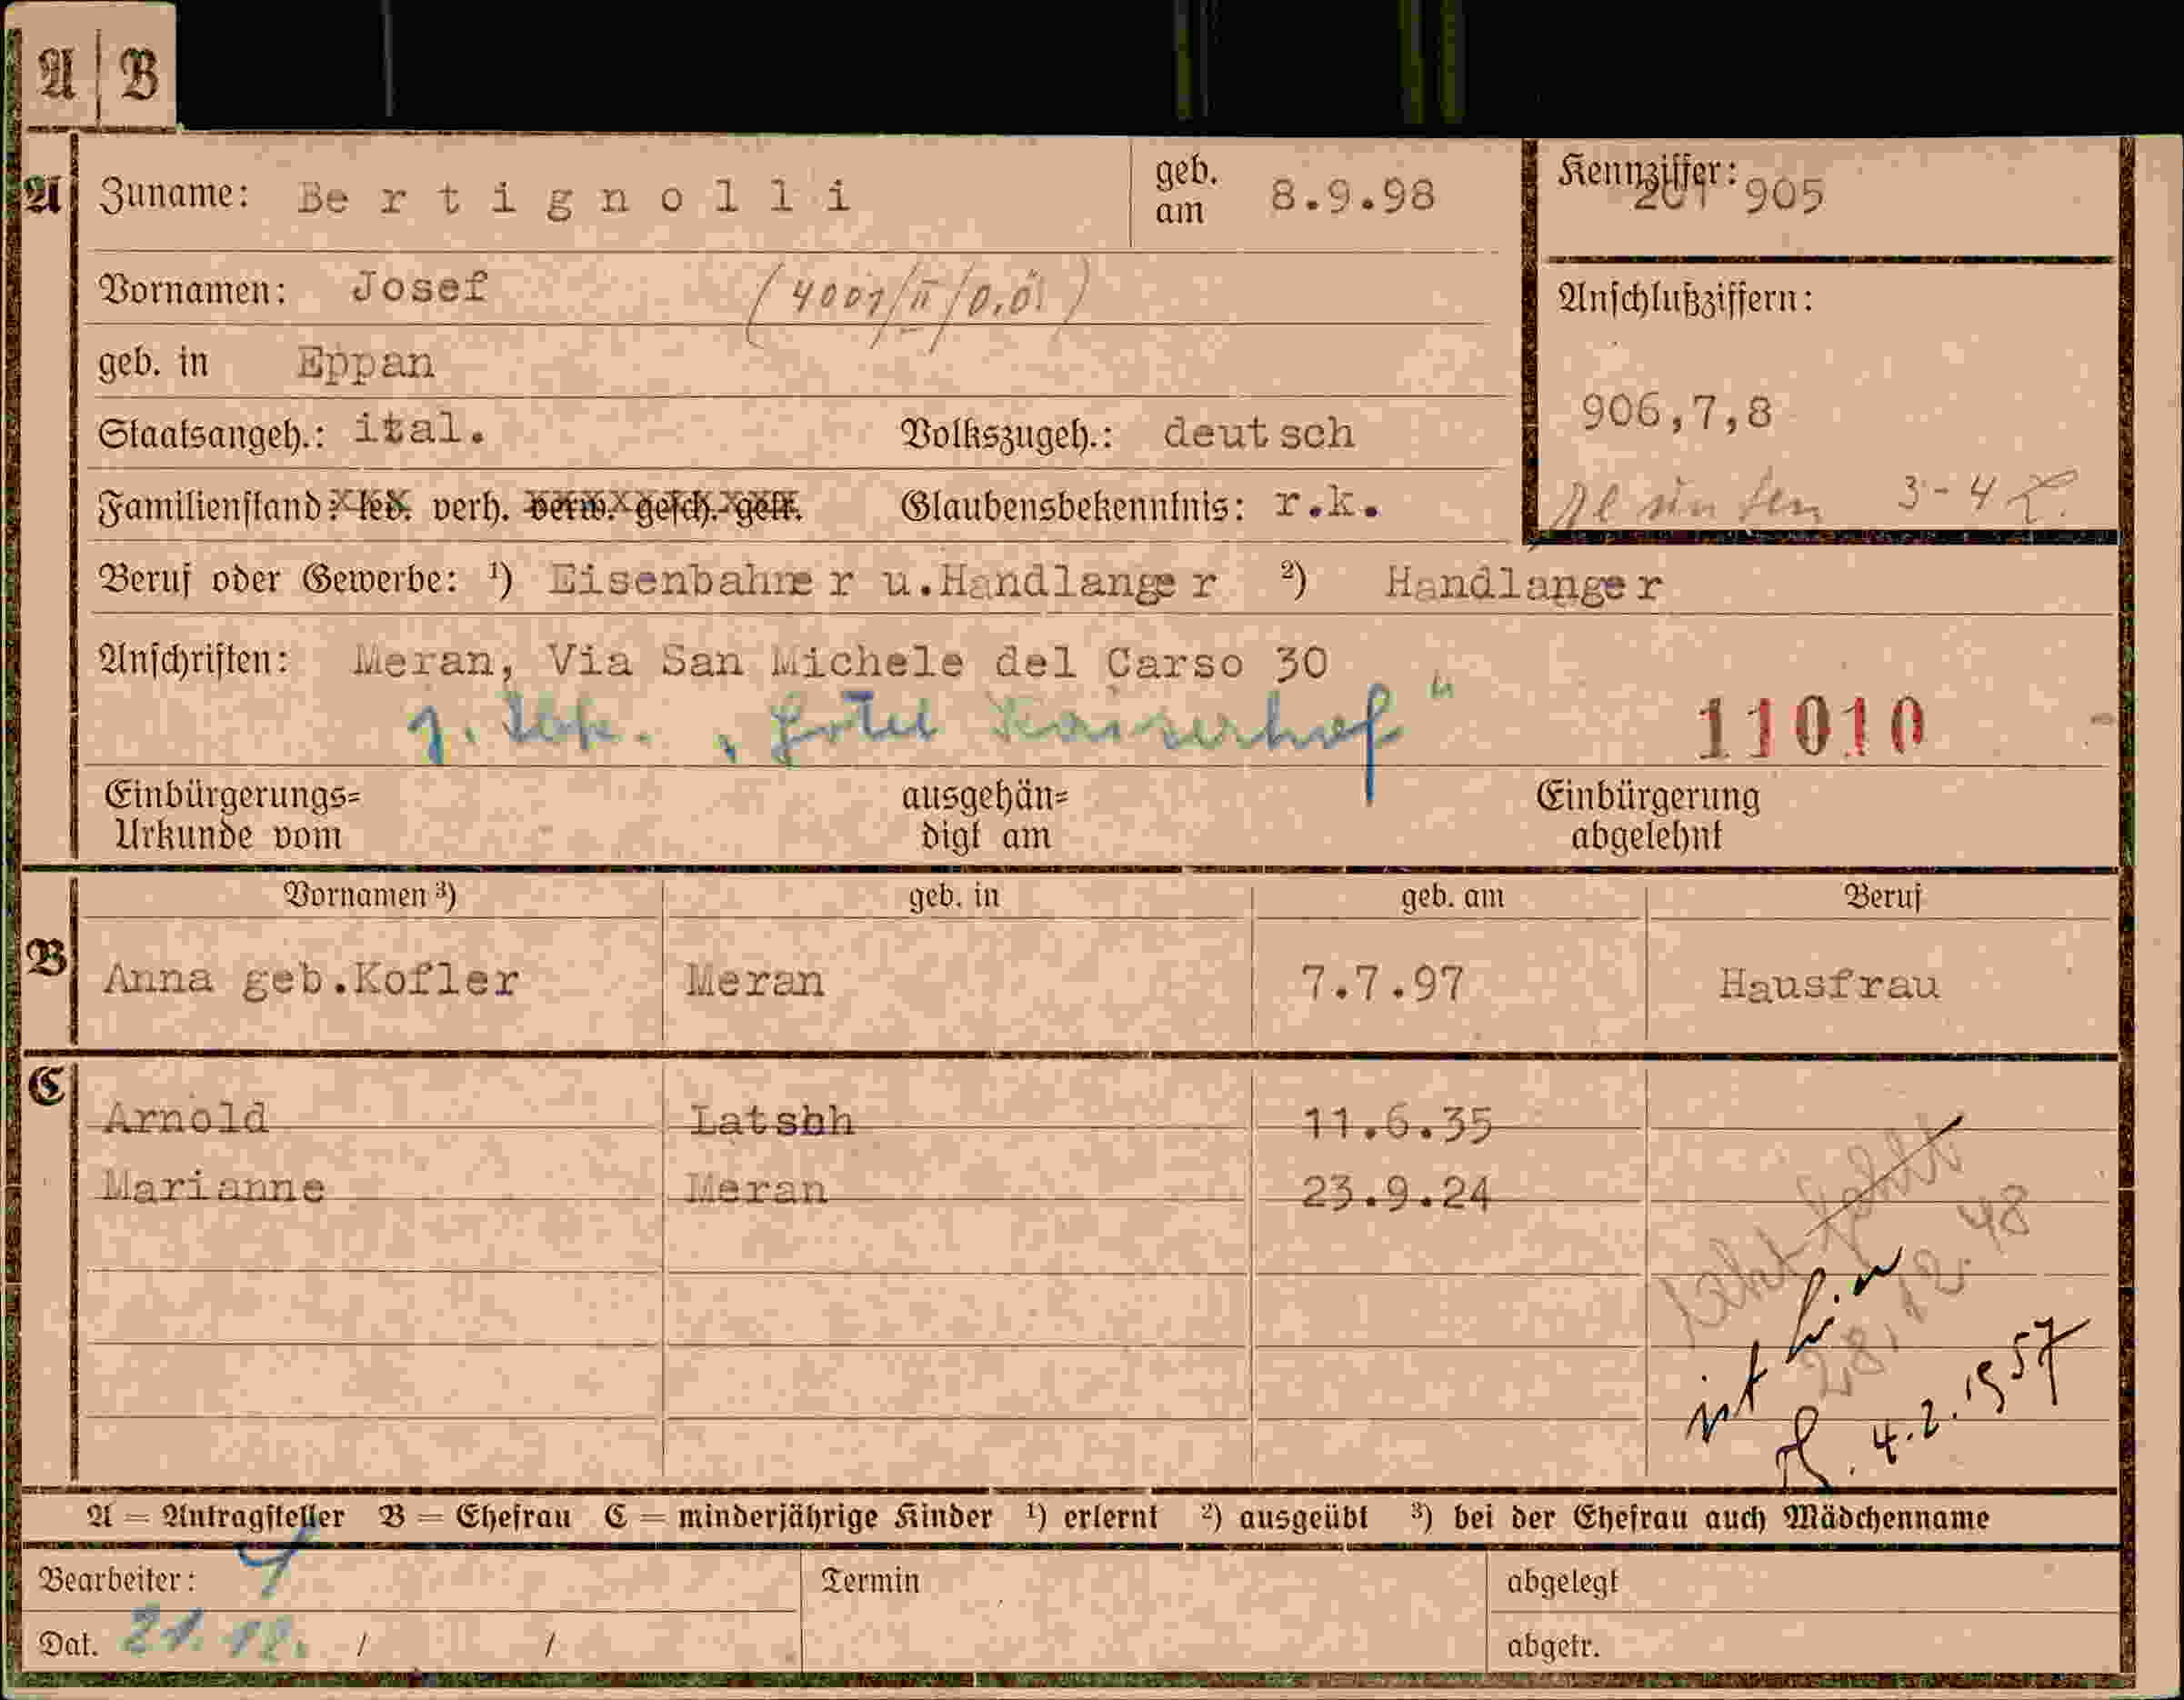 A | B
A Zuname: Bertignolli geb. am 8.9.98 Kennziffer: 201 905
Vornamen: Josef (4001/II/O.Ö.) Anschlußziffern:
geb. in Eppan
906,7,8
Staatsangeh.: ital. Volkszugeh.: deutsch
Familienstand: led. verh. verw. gesch. getr. Glaubensbekenntnis: r.k. 3-4
Beruf oder Gewerbe: ¹) Eisenbahner u.Handlanger ²) Handlanger
Anschriften: Meran, Via San Michele del Carso 30
„Hotel Kaiserhof" 11010
Einbürgerungs= ausgehän= Einbürgerung
Urkunde vom digt am abgelehnt
Vornamen ³) geb. in geb. am Beruf
B Anna geb.Kofler Meran 7.7.97 Hausfrau
C
Arnold Latsbh 11.6.35
Marianne Meran 23.9.24
28.12.48
ist
4.2.1957
A = Antragsteller B = Ehefrau C = minderjährige Kinder ¹) erlernt ²) ausgeübt ³) bei der Ehefrau auch Mädchenname
Bearbeiter: Termin abgelegt
Dat. 21.12. / / abgetr.